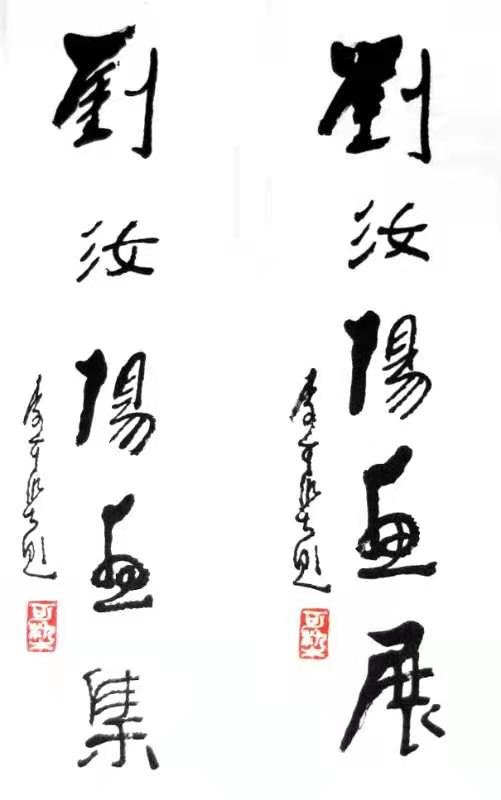 劉汝陽畫展
李可染題
可染
劉汝陽畫集
李可染題
可染